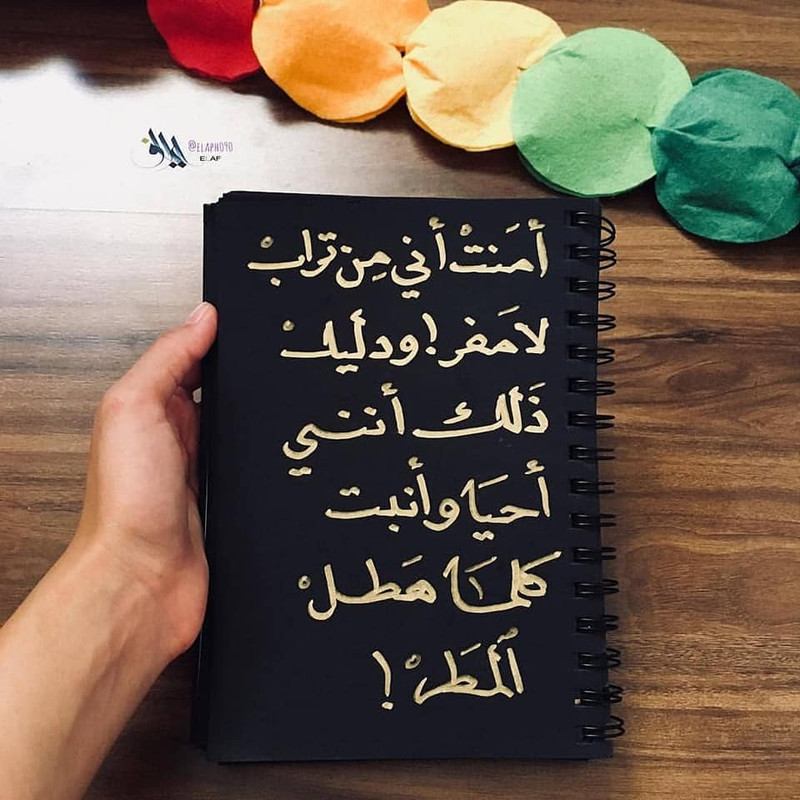 إيلاف
@ELAPH090
ELAF
أمَنتْ أني مِن ترابْ
لا مَفر! ودليلْ
ذَلك أنني
أحيَا وأنبت
كلمَا هَطلْ
المَطرْ!